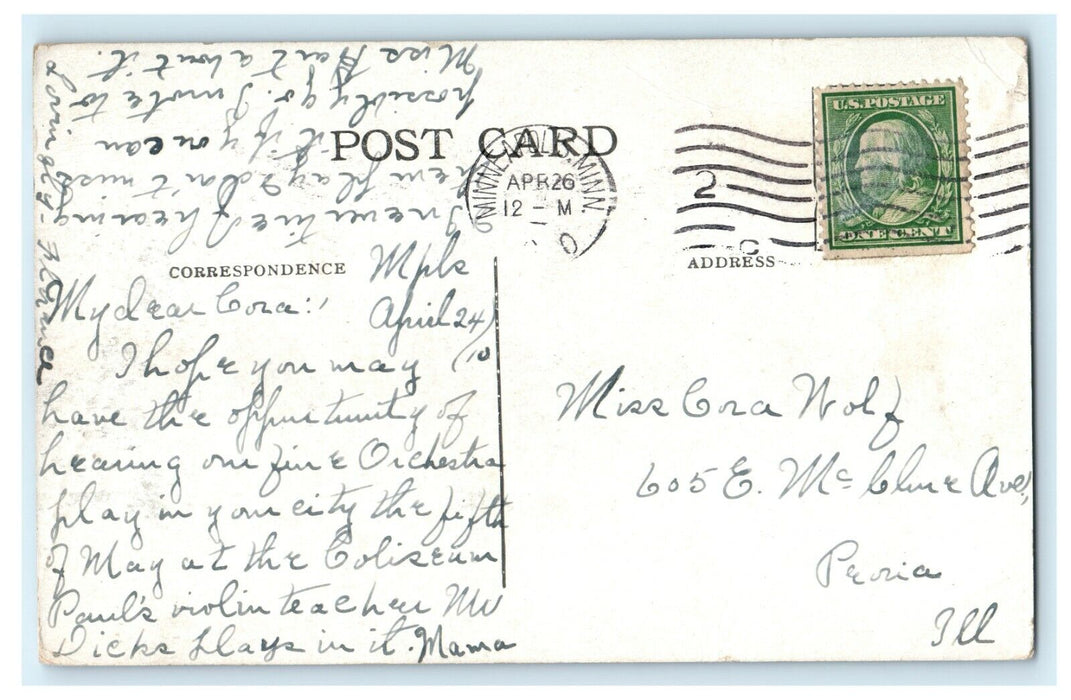 POST CARD
MINNEAPOLIS, MINN.
APR 26
12 - M
2
U.S. POSTAGE
ONE CENT
CORRESPONDENCE
ADDRESS
Mpls
April 24,
'10
My dear Cora:
I hope you may
have the opportunity of
hearing our fine Orchestra
play in your city the fifth
of May at the Coliseum
Paul's violin teacher Mr
Dicks plays in it. Mama
& I never tire of hearing
them play & don't miss
it if you can
possibly go. I wrote to
Miss Hart about it.
Lovingly - Florence
Miss Cora Wolf
605 E. Mc Clure Ave,
Peoria
Ill